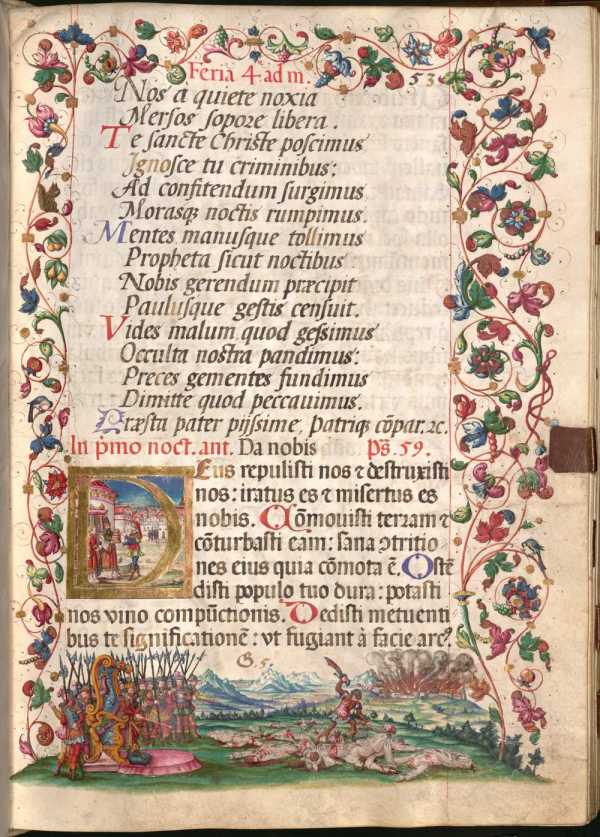 Feria 4 ad m. 53
Nos a quiete noxia
Mersos sopore libera.
Te sancte Christe poscimus
Ignosce tu criminibus:
Ad confitendum surgimus
Morasqꝫ noctis rumpimus.
Mentes manusque tollimus
Propheta sicut noctibus
Nobis gerendum præcipit
Paulusque gestis censuit.
Vides malum quod gessimus
Occulta nostra pandimus:
Preces gementes fundimus
Dimitte quod peccauimus.
Præsta pater pijssime, Patriqꝫ cōpar. ꝛc.
In pᵐo noct. ant. Da nobis Ps. 59.
Deus repulisti nos ⁊ destruxisti
nos: iratus es ⁊ misertus es
nobis. Cōmouisti terram ⁊
cōturbasti eam: sana ↄtritio
nes eius quia cōmota ē. Ostē
disti populo tuo dura: potasti
nos vino compūctionis. Dedisti metuenti
bus te significationē: vt fugiant à facie arcꝰ
G. 5.